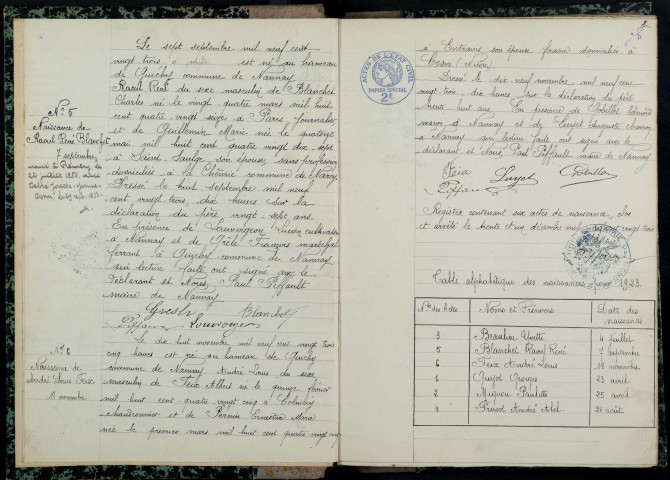 Le sept septembre mil neuf cent
vingt trois, à midi est né au hameau
de Quichy commune de Nannay
Raoul René du sexe masculin de Blanchet
Charles né le vingt quatre mars mil huit
cent quatre vingt seize à Paris, journalier
et de Guillemin Marie née le quatorze
mai mil huit cent quatre vingt dix sept
à Saint Saulge son épouse, sans profession
domiciliés à la commune de Narcy
Dressé le huit septembre mil neuf
cent vingt trois, dix heures sur la
déclaration du père, vingt sept ans.
En présence de Sauvergeon Lucien cultivateur
à Nannay et de François maréchal
ferrant à Quichy commune de Nannay
qui lecture faite ont signé avec le
déclarant et Nous, Paul Piffault
maire de Nannay
Blanchet
N° 5
Naissance de
Raoul René Blanchet
7 septembre
N° 6
Naissance de
André Louis Feix
novembre
Le dix huit novembre mil neuf cent vingt trois
cinq heures est né au hameau de Quichy
commune de Nannay André Louis du sexe
masculin de Feix Albert né le quinze février
mil huit cent quatre vingt cinq à
chaudronnier et de Perrin Ernestine Marie
née le premier mars mil huit cent quatre vingt cinq
à Entrains, son épouse foraine domiciliés à
Cosne (Nièvre)
Dressé le dix neuf novembre mil neuf cent
vingt trois, dix heures sur la déclaration du père
trente huit ans. En présence de
maçon à Nannay et de charron
à Nannay qui lecture faite ont signé avec le
déclarant et Nous, Paul Piffault maire de Nannay
Feix
ACTES DE L'ETAT CIVIL
PAPIER SPECIAL
2F
Registre contenant six actes de naissance, clos
et arrêté le trente et un décembre mil neuf cent vingt trois
Table alphabétique des naissances, année 1923.
Nos des Actes Noms et Prénoms Date des naissances
3 Beaulieu Yvette 4 juillet
5 Blanchet Raoul René 7 septembre
6 Feix André Louis 18 novembre
1 Guyot Georges 23 avril
2 Mignon Paulette 25 avril
4 André Abel 21 août